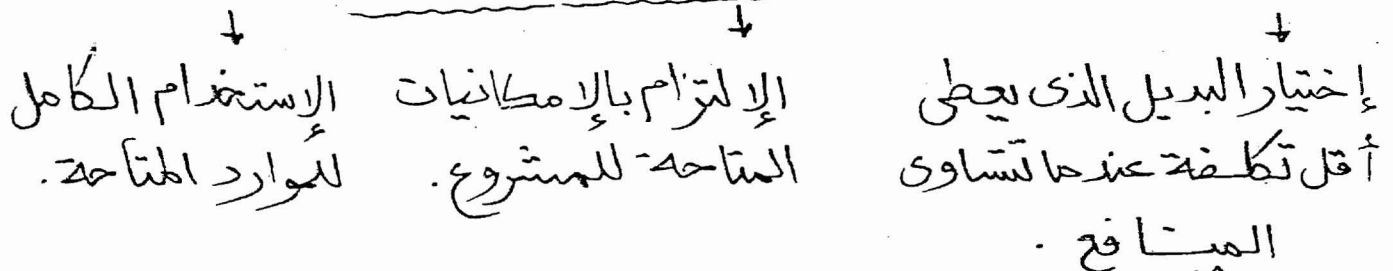 إختيار البديل الذى يعطى
أقل تكلفة عندما تتساوى
المنافع .
الإلتزام بالإمكانيات
المتاحة للمشروع .
الإستخدام الكامل
للموارد المتاحة .